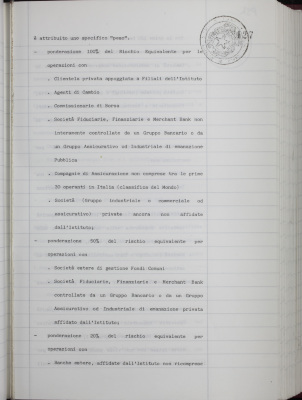 è attribuito uno specifico "peso".
- ponderazione 100% del Rischio Equivalente per le
operazioni con
. Clientela privata appoggiata a Filiali dell'Istituto
. Agenti di Cambio
. Commissionario di Borsa
. Società Fiduciarie, Finanziarie e Merchant Bank non
interamente controllate da un Gruppo Bancario o da
un Gruppo Assicurativo od Industriale di emanazione
Pubblica
. Compagnie di Assicurazione non comprese tra le prime
35 operanti in Italia (classifica del Mondo)
. Società (Gruppo industriale o commerciale od
assicurativo) private ancora non affidate
dall'Istituto;
- ponderazione 50% del rischio equivalente per
operazioni con
. Società estere di gestione Fondi Comuni
. Società Fiduciarie, Finanziarie e Merchant Bank
controllate da un Gruppo Bancario o da un Gruppo
Assicurativo od Industriale di emanazione privata
affidato dall'Istituto;
- ponderazione 20% del rischio equivalente per
operazioni con
. Banche estere, affidate dall'Istituto non ricomprese